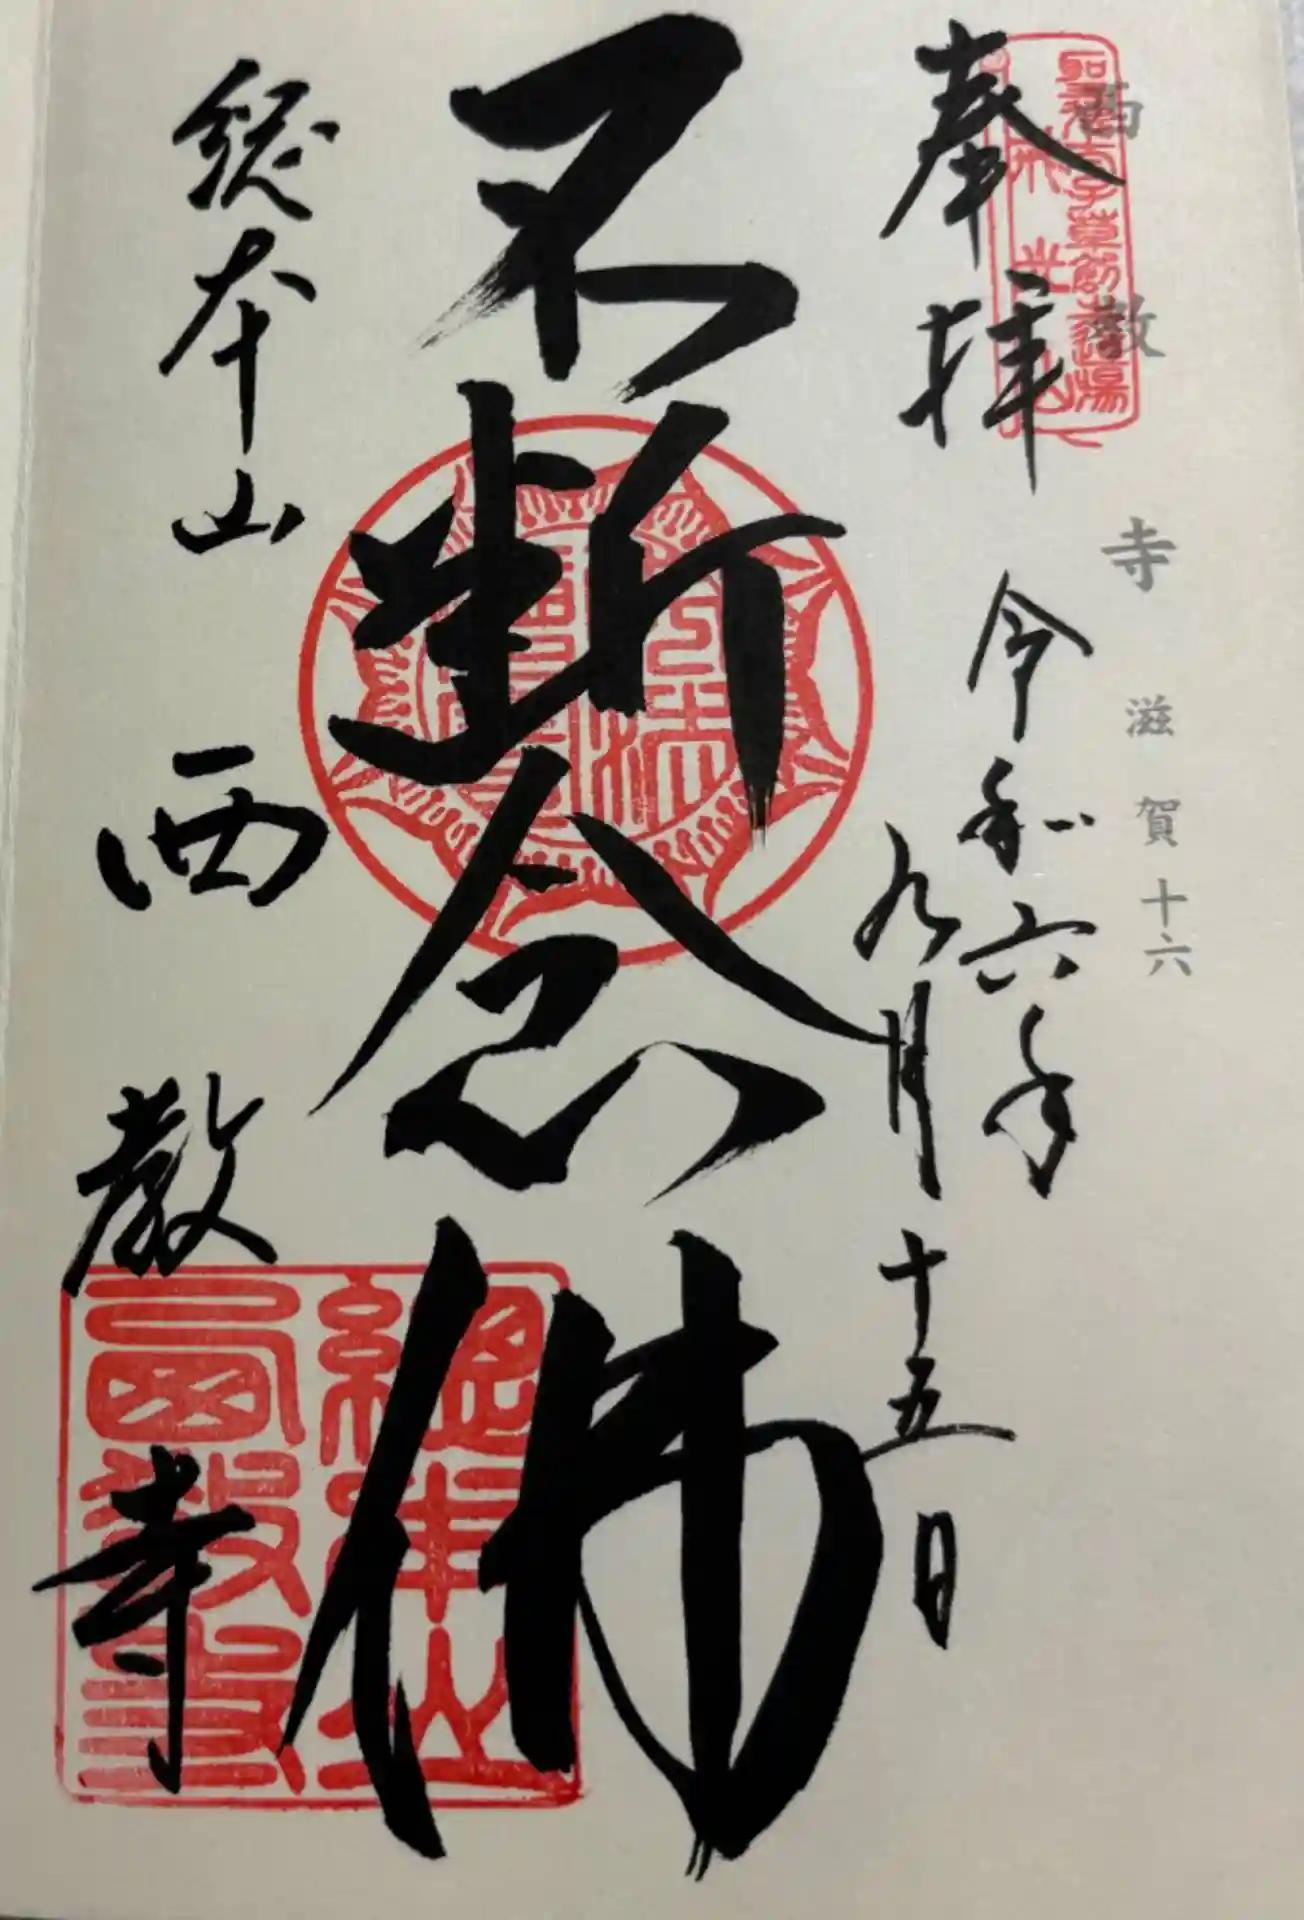 西教寺 滋賀十六
聖徳太子草創道場
奉拝
令和六年
九月十五日
不断念佛
総本山
西教寺
總本山
西教寺